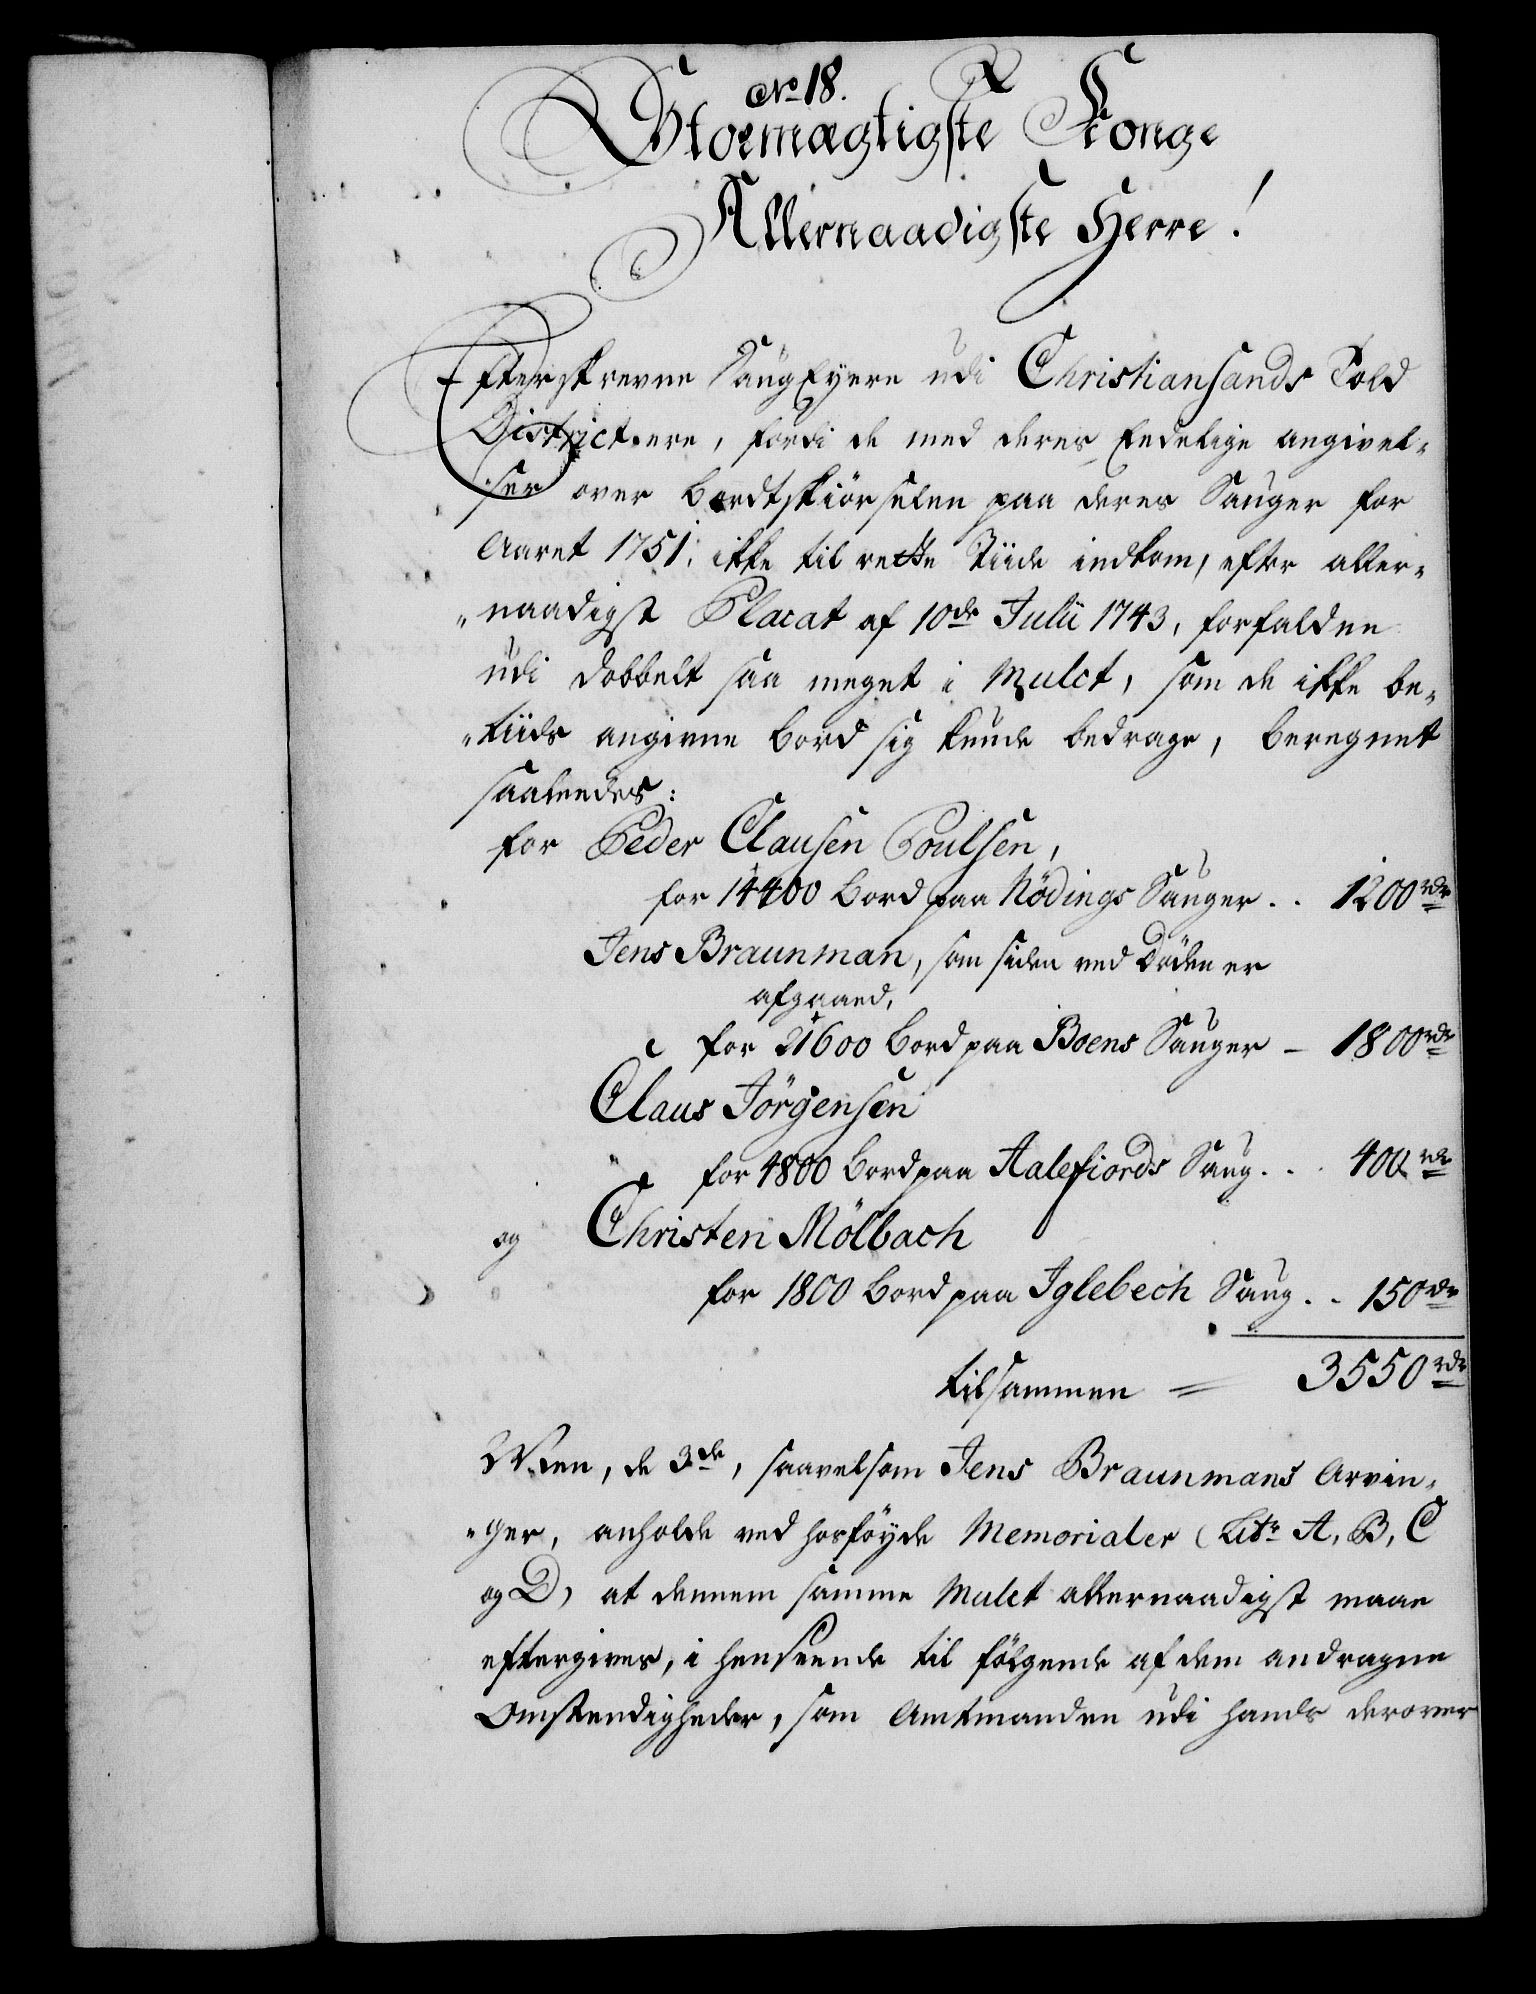 No 18.
Stormægtigste Konge
Allernaadigste Herre!
Efterskrevne SaugEyere udi Christiansands Told
District ere, fordi de med deres Eedelige angivel-
ser over bordtskiörselen paa deres Sauger for
Aaret 1751. ikke til rette Tiide indkom, efter aller-
naadigst Placat af 10de Julii 1743, forfaldne
udi dobbelt saa meget i Mulct, som de ikke be-
tiids angivne bord sig kunde bedrage, beregnet
saaledes:
for Peder Clausen Poulsen,
for 14400 bord paa Nödings Sauger . . 1200 rdr
Jens Braunman, som siden ved Döden er
afgaaed,
for 21600 bord paa Boens Sauger - 1800 rdr
Claus Jörgensen
for 4800 bord paa Aalefiords Saug . . . 400 rdr
og Christen Mölbach
for 1800 bord paa Iglebech Saug . . 150 rdr
tilsammen = 3550 rdr
Men, de 3de, saavelsom Jens Braunmans Arvin-
ger, anholde ved hosföyde Memorialer (Litr A, B, C
og D) at dennem samme Mulct allernaadigst maae
eftergives, i henseende til fölgende af dem andragne
Omstendigheder, som Amtmanden udi hands derover